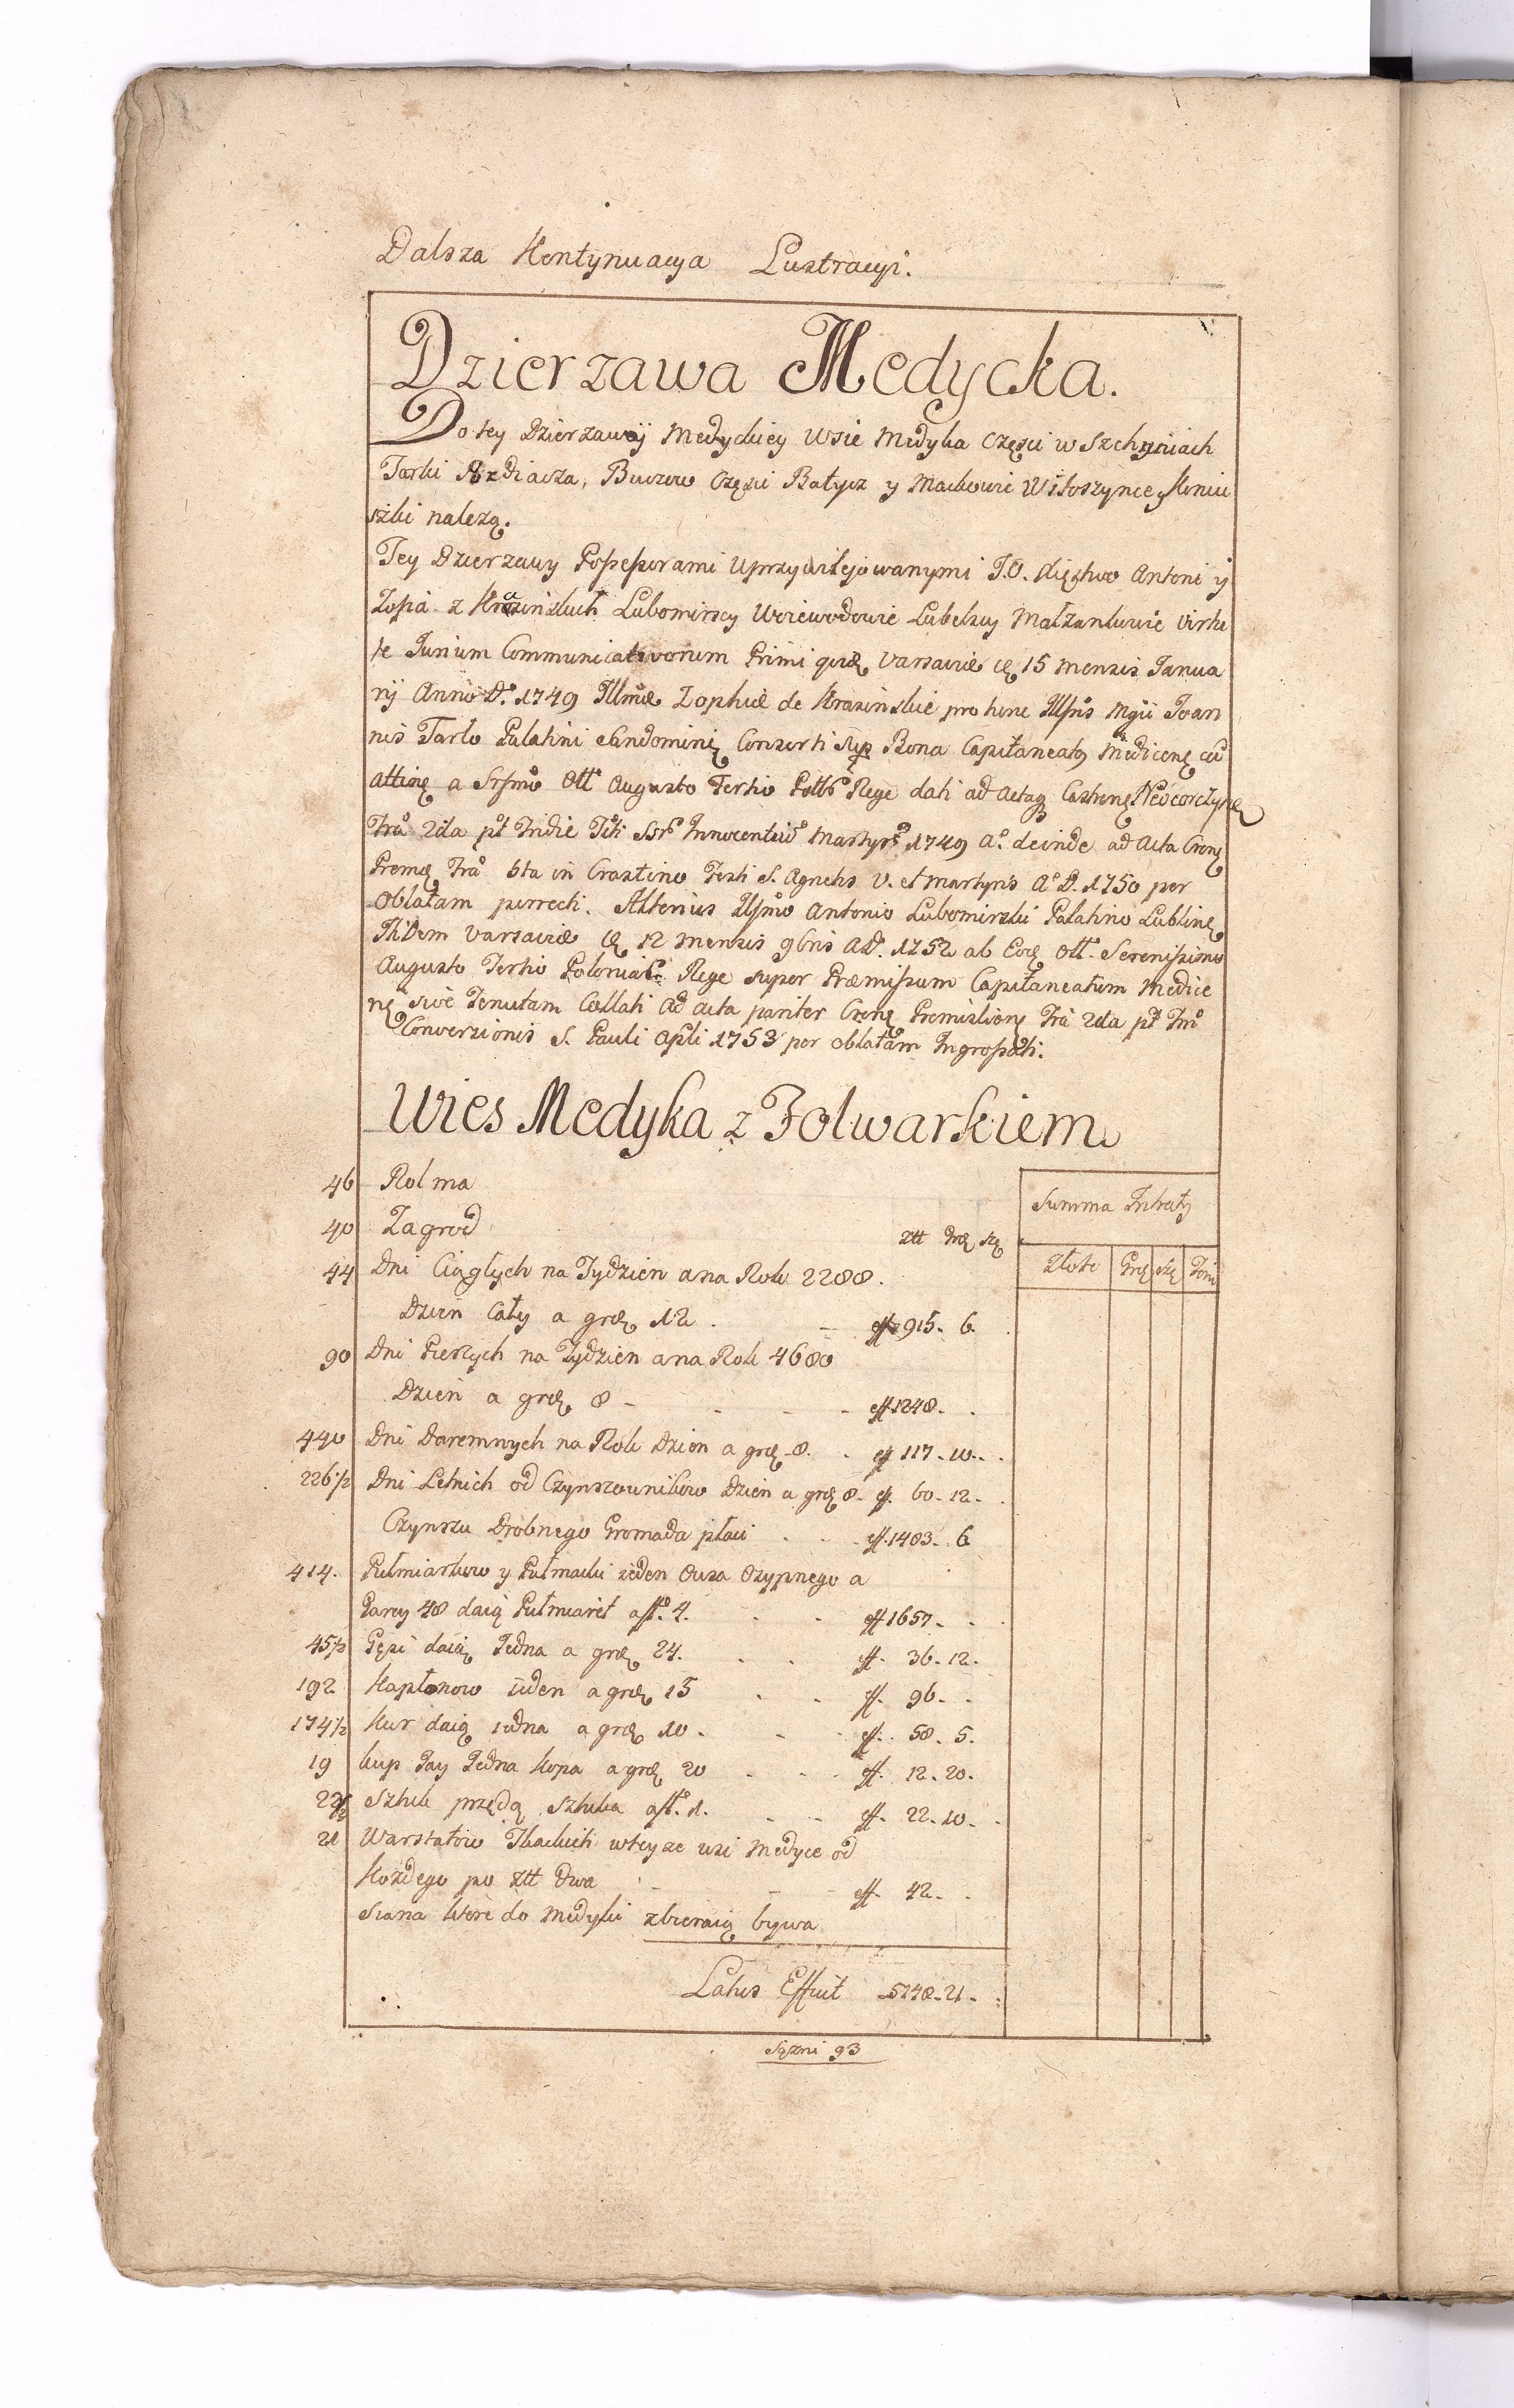 Dalsza Kontynuacya Lustracyi.
Dzierzawa Medycka.
Do tey Dzierzawy Medyckiey Wsie Medyka Części w Szechyniach
Torki Pozdiacza, Buczow Części Batycz y Mackowic Witoszynce y Koniu
szki nalezą.
Tey Dzierzawy Possessorami Uprzywilejowanymi J.O. Xięztwo Antoni y
Zofia z Krasinskich Lubomirscy Woiewodowie Lubelscy Małzankowie virtu
te Jurium Communicativorum Primi quid Varsaviæ 15 Mensis Janua
rij Anno D. 1749 Illmæ Zophiæ de Krasinskie pro hunc Illmi Mgci Joan
nis Tarło Palatini Sandomir Consorti sup Bona Capitaneatq Medicen cū
attin a Srsmo Olł Augusto Tertio Rege dati ad Acta Castren Neocorczyn
Fra 2da pt Pridie Fti SSr Innocentiū Martyr 1749 A. deinde ad Acta Cren
Prem Fra 6ta in Crastino Festi S. Agnetis V. et Martyris A D. 1750 per
Oblatam porrecti. Alterius Illsmo Antonio Lubomirski Palatino Lublin
Ibidem Varsaviæ 12 Mensis 9bris AD. 1752 ab Eod Olł Serenissimo
Augusto Tertio Poloniar Rege super Præmissum Capitaneatum Medice
n sive Tenutam Collati Ad Acta pariter Cren Premislien Fra 2da pt Fm
Conversionis S. Pauli Apli 1753 per oblatam Ingrossati.
Wies Medyka z Folwarkiem
46 Rol ma
Summa Intraty
40 Zagrod
złł Gr Sz
Złote Gr Sz
44 Dni Ciągłych na Tydzien a na Rok 2288.
Dzien Cały a gr 12. eff 915. 6.
90 Dni Pieszych na Tydzien a na Rok 4680
Dzien a gr 8 - eff. 1248.
440 Dni Daremnych na Rok Dzien a gr 8. eff 117. 10.
226 1/2 Dni Letnich od Czynszownikow Dzien a gr 8. eff. 60. 12.
Czynszu Drobnego Gromada płaci eff. 1483. 6
414. Pułmiarkow y Pułmacki ieden Owsa Ozypnego a
Garcy 48 daią Pułmiarek a fł. 4. eff 1657.
45 1/2 Gęsi daią Jedna a gr 24. eff. 36. 12.
192 Kapłonow ieden a gr 15 eff. 96.
174 1/2 Kur daią iedna a gr 10. eff. 58. 5.
19 kup Jay Jedna kopa a gr 20 eff. 12. 20.
22 1/2 Sztuk przędą Sztuka a fł. 1. eff. 22. 10.
21 Warstatow Tkackich w teyze wsi Medyce od
Kozdego po złł Dwa eff. 42.
Siana które do Medyki zbieraią bywa
Latus Effuit 5748. 21.
Sązni 93